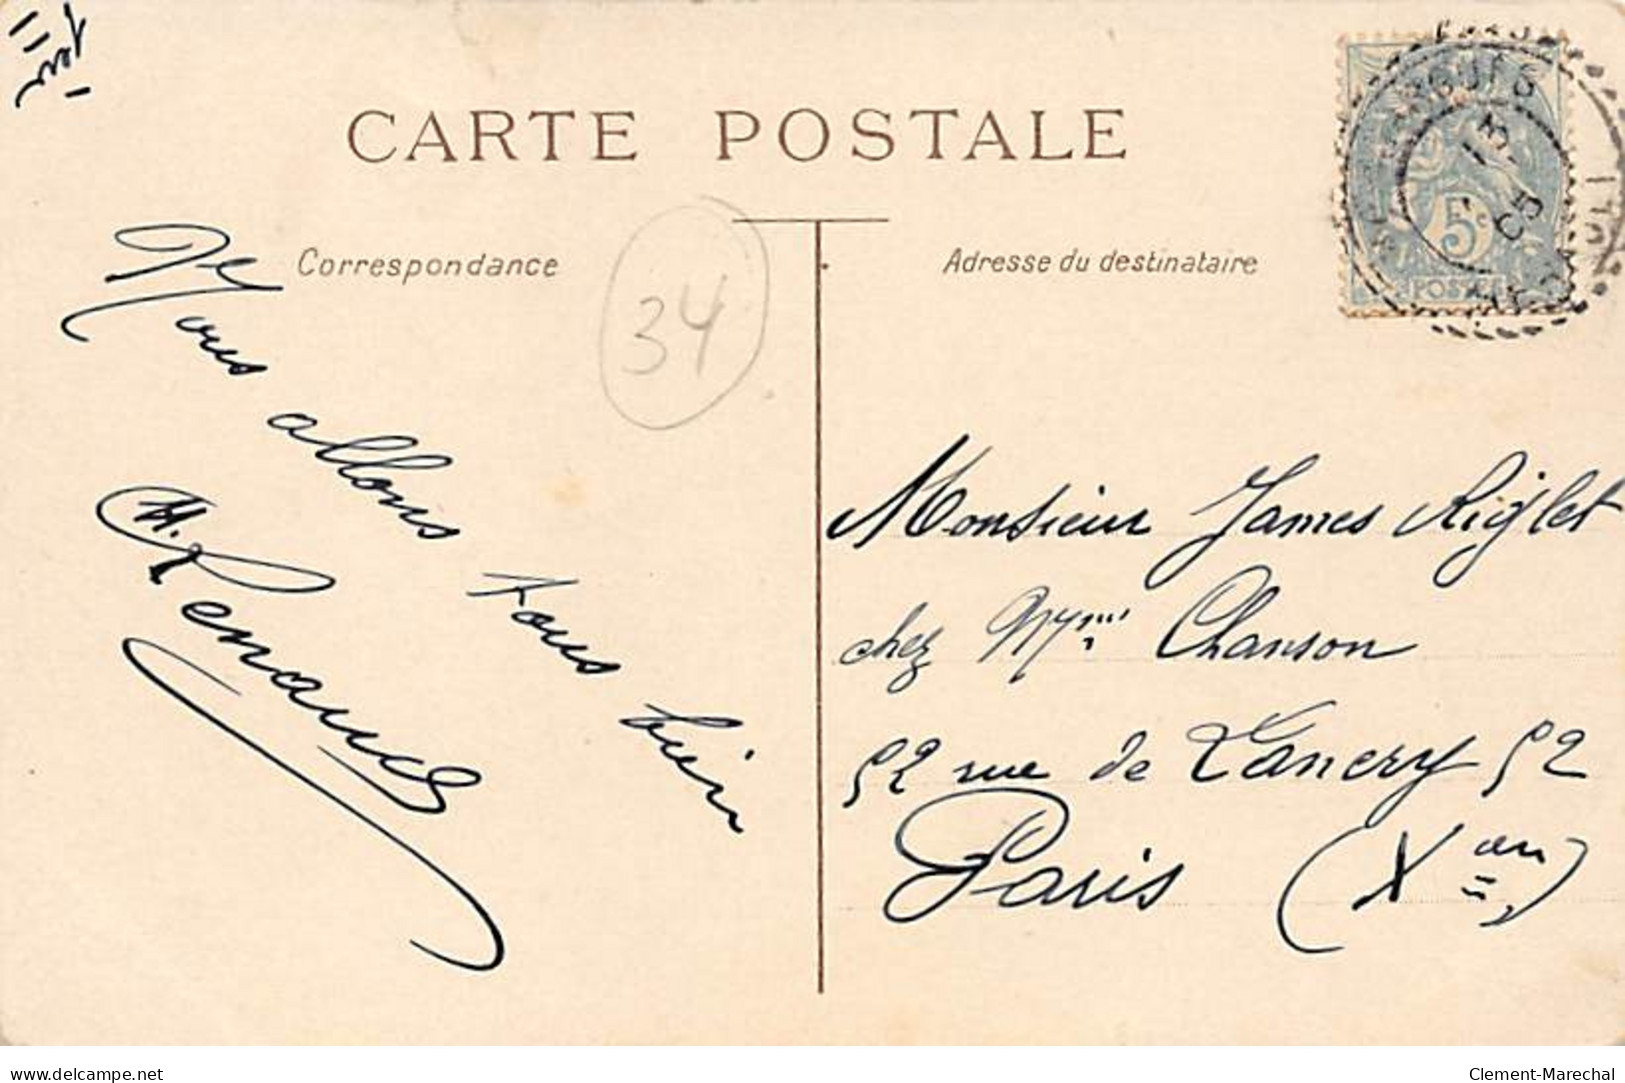 CARTE POSTALE
Correspondance
Adresse du destinataire
34
5c
POSTES
05
Nous allons tous bien
H. Renaud
Monsieur James Riglet
chez Mme Chanson
52 rue de Lancry 52
Paris (Xe)
delcampe.net
Clement-Marechal